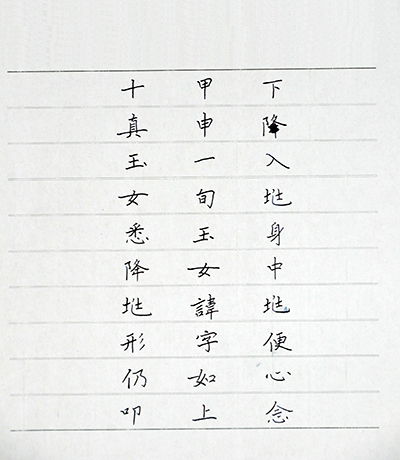 下降入兆身中兆便心念
甲申一旬玉女諱字如上
十真玉女悉降兆形仍叩